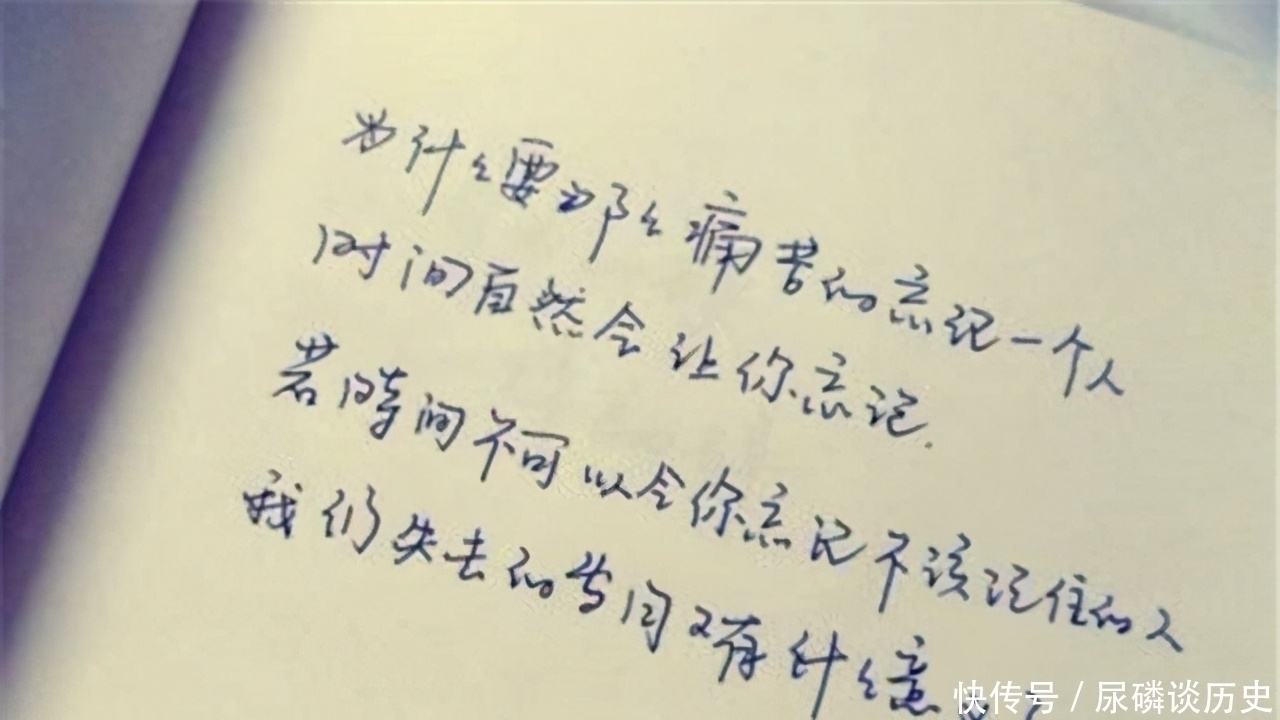 为什么要那么痛苦的忘记一个人
时间自然会让你忘记.
若时间不可以令你忘记不该记住的人
我们失去的岁月又有什么意
快传号 / 尿磷谈历史